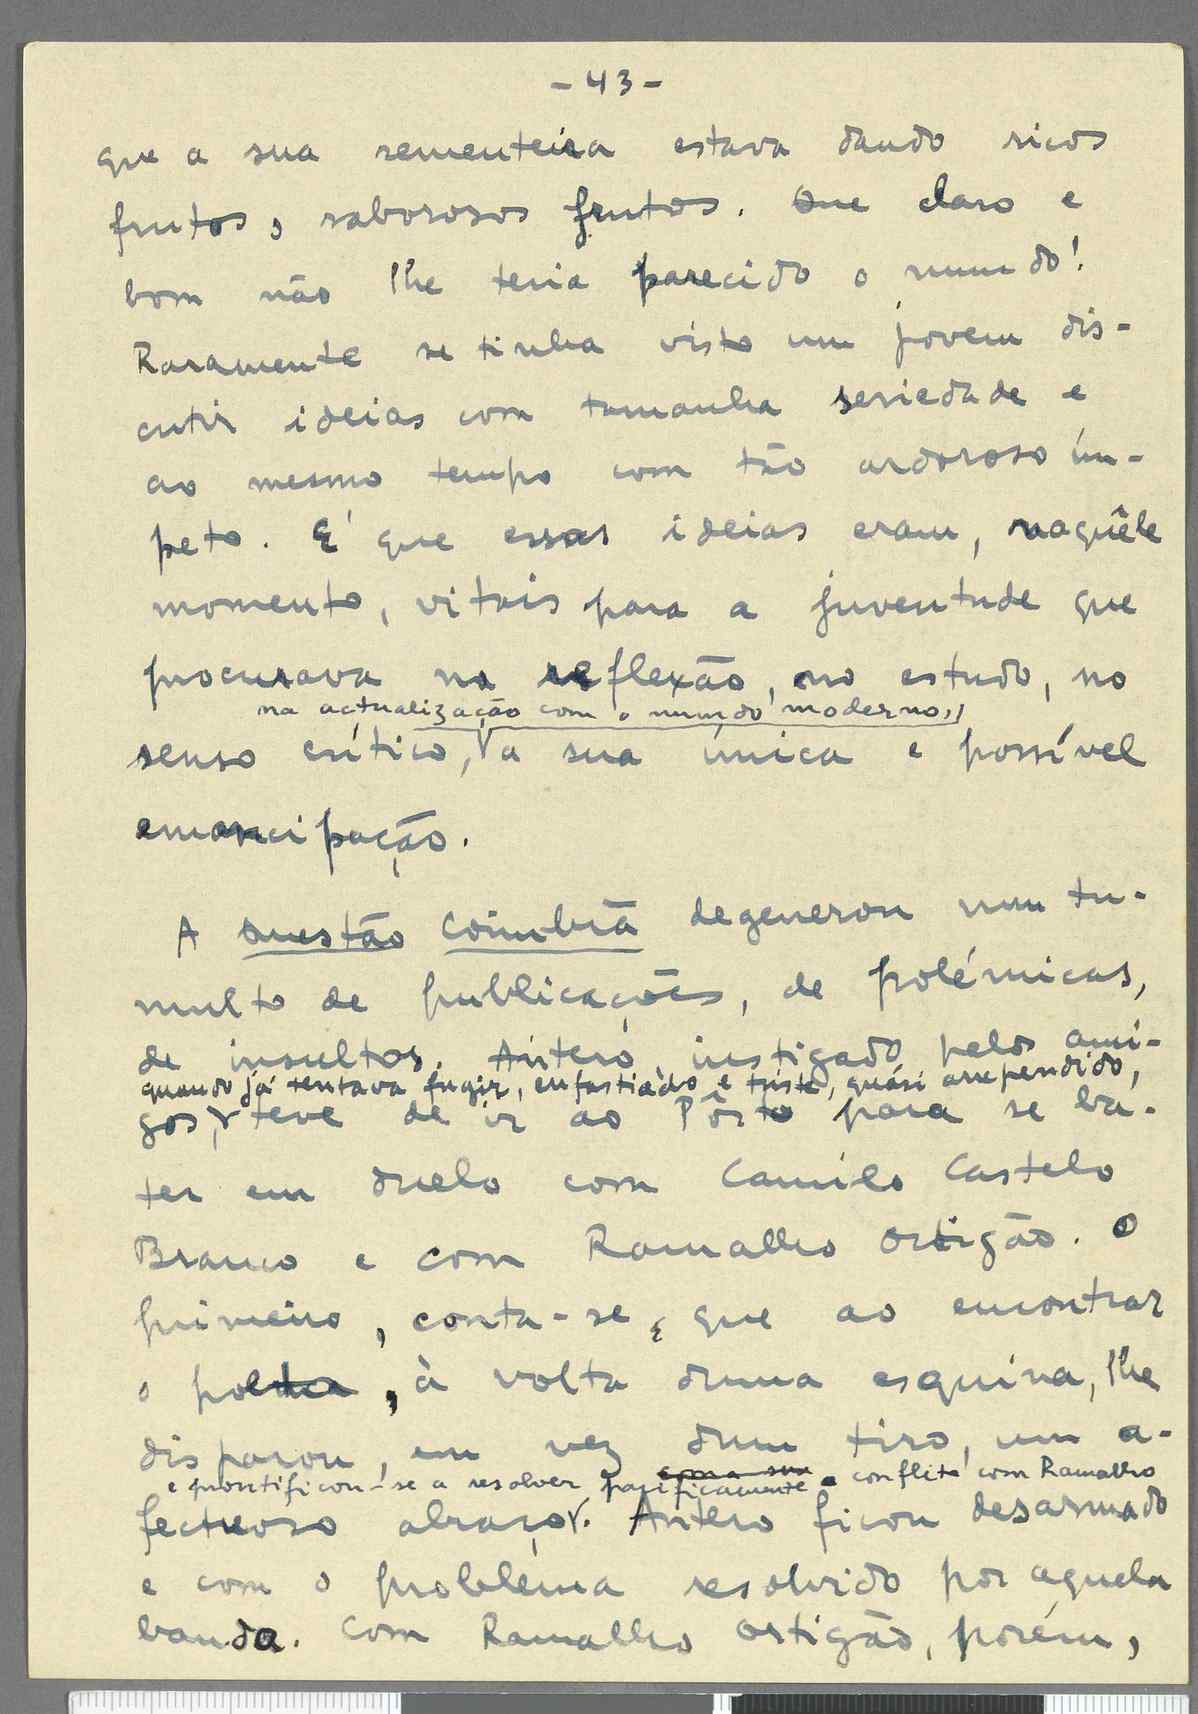 - 43 -
que a sua sementeira estava dando ricos
frutos, saborosos frutos. Que claro e
bom não lhe teria parecido o mundo!
Raramente se tinha visto um jovem dis-
cutir ideias com tamanha seriedade e
ao mesmo tempo com tão ardoroso ím-
peto. É que essas ideias eram, naquêle
momento, vitais para a juventude que
procurava na reflexão, no estudo, no
na actualização com o mundo moderno,
senso crítico, a sua única e possível
emancipação.
A Questão Coimbrã degenerou num tu-
multo de publicações, de polémicas,
de insultos. Antero, instigado pelos ami-
quando já tentava fugir, enfastiado e triste, quási arrependido,
gos, teve de ir ao Pôrto para se ba-
ter em duelo com Camilo Castelo
Branco e com Ramalho Ortigão. O
primeiro, conta-se, que ao encontrar
o poeta, à volta duma esquina, lhe
disparou, em vez dum tiro, um a-
e prontificou-se a resolver pacificamente o conflito com Ramalho
fectuoso abraço. Antero ficou desarmado
e com o problema resolvido por aquela
banda. Com Ramalho Ortigão, porém,